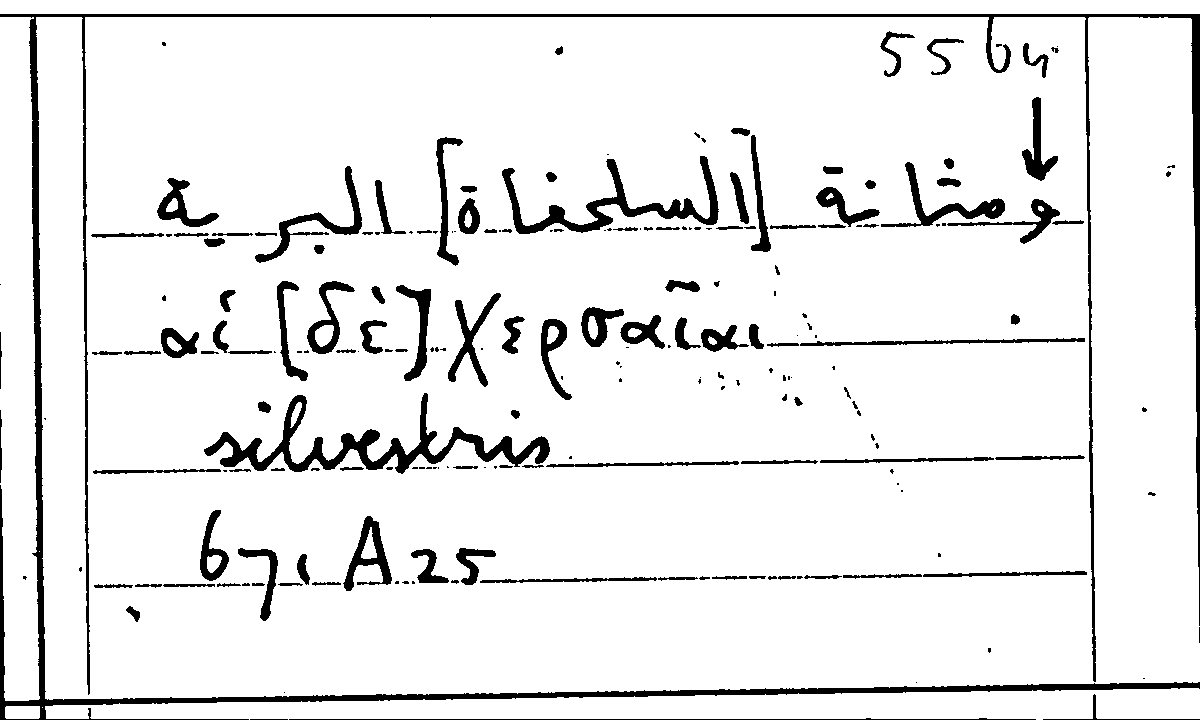 55b4
ومثانة [السلحفاة] البرية
αἱ [δὲ] χερσαῖαι
silvestris
671 A 25